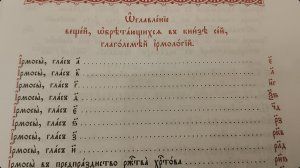 Ѡ҆главле́нїе
веще́й, ѡ҆брѣта́ющихсѧ въ кни́зѣ се́й,
глаго́лемѣй і҆рмоло́гїй.
І҆рмосы̀, гла́съ а҃
І҆рмосы̀, гла́съ в҃
І҆рмосы̀, гла́съ г҃
І҆рмосы̀, гла́съ д҃
І҆рмосы̀, гла́съ є҃
І҆рмосы̀, гла́съ ѕ҃
І҆рмосы̀, гла́съ з҃
І҆рмосы̀, гла́съ и҃
І҆рмосы̀ въ предпразднство ржⷭ҇тва̀ хрⷭ҇то́ва